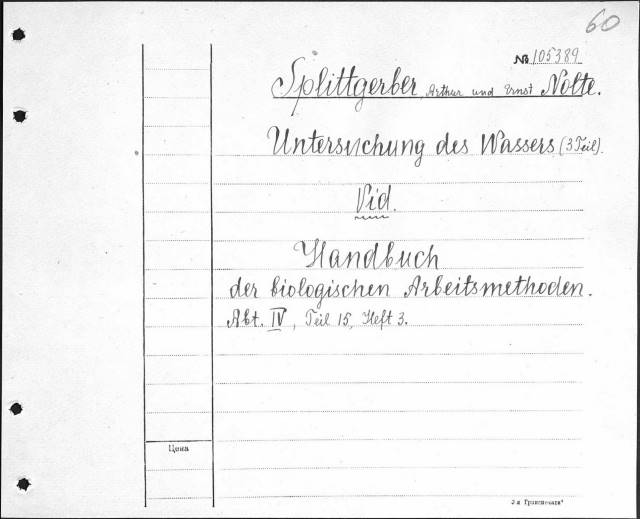 60
№ 105389
Splittgerber, Arthur und Ernst Nolte.
Untersuchung des Wassers (3 Teil).
Vid.
Handbuch
der biologischen Arbeitsmethoden.
Abt. IV, Teil 15, Heft 3.
Цена